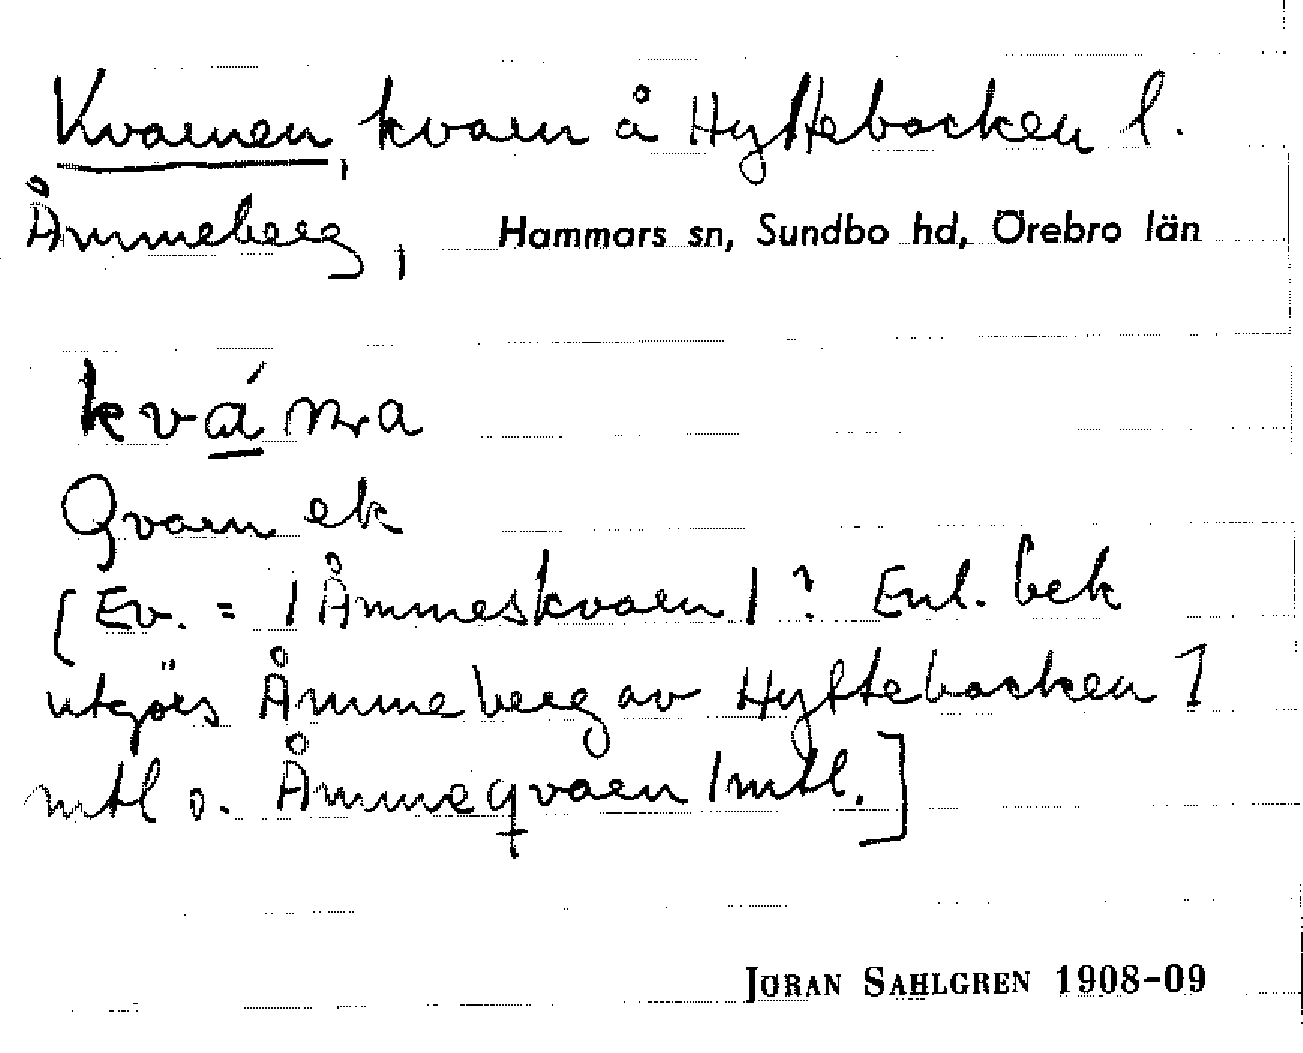 Kvarnen, kvarn å Hyttebacken l.
Åmmeberg, Hammars sn, Sundbo hd, Örebro län
kvá̱rna
Qvarn ek
[Ev. = / Åmmeskvarn / ? Enl. bek
utgörs Åmmeberg av Hyttebacken 1
mtl o. Åmmeqvarn 1 mtl.]
JÖRAN SAHLGREN 1908-09